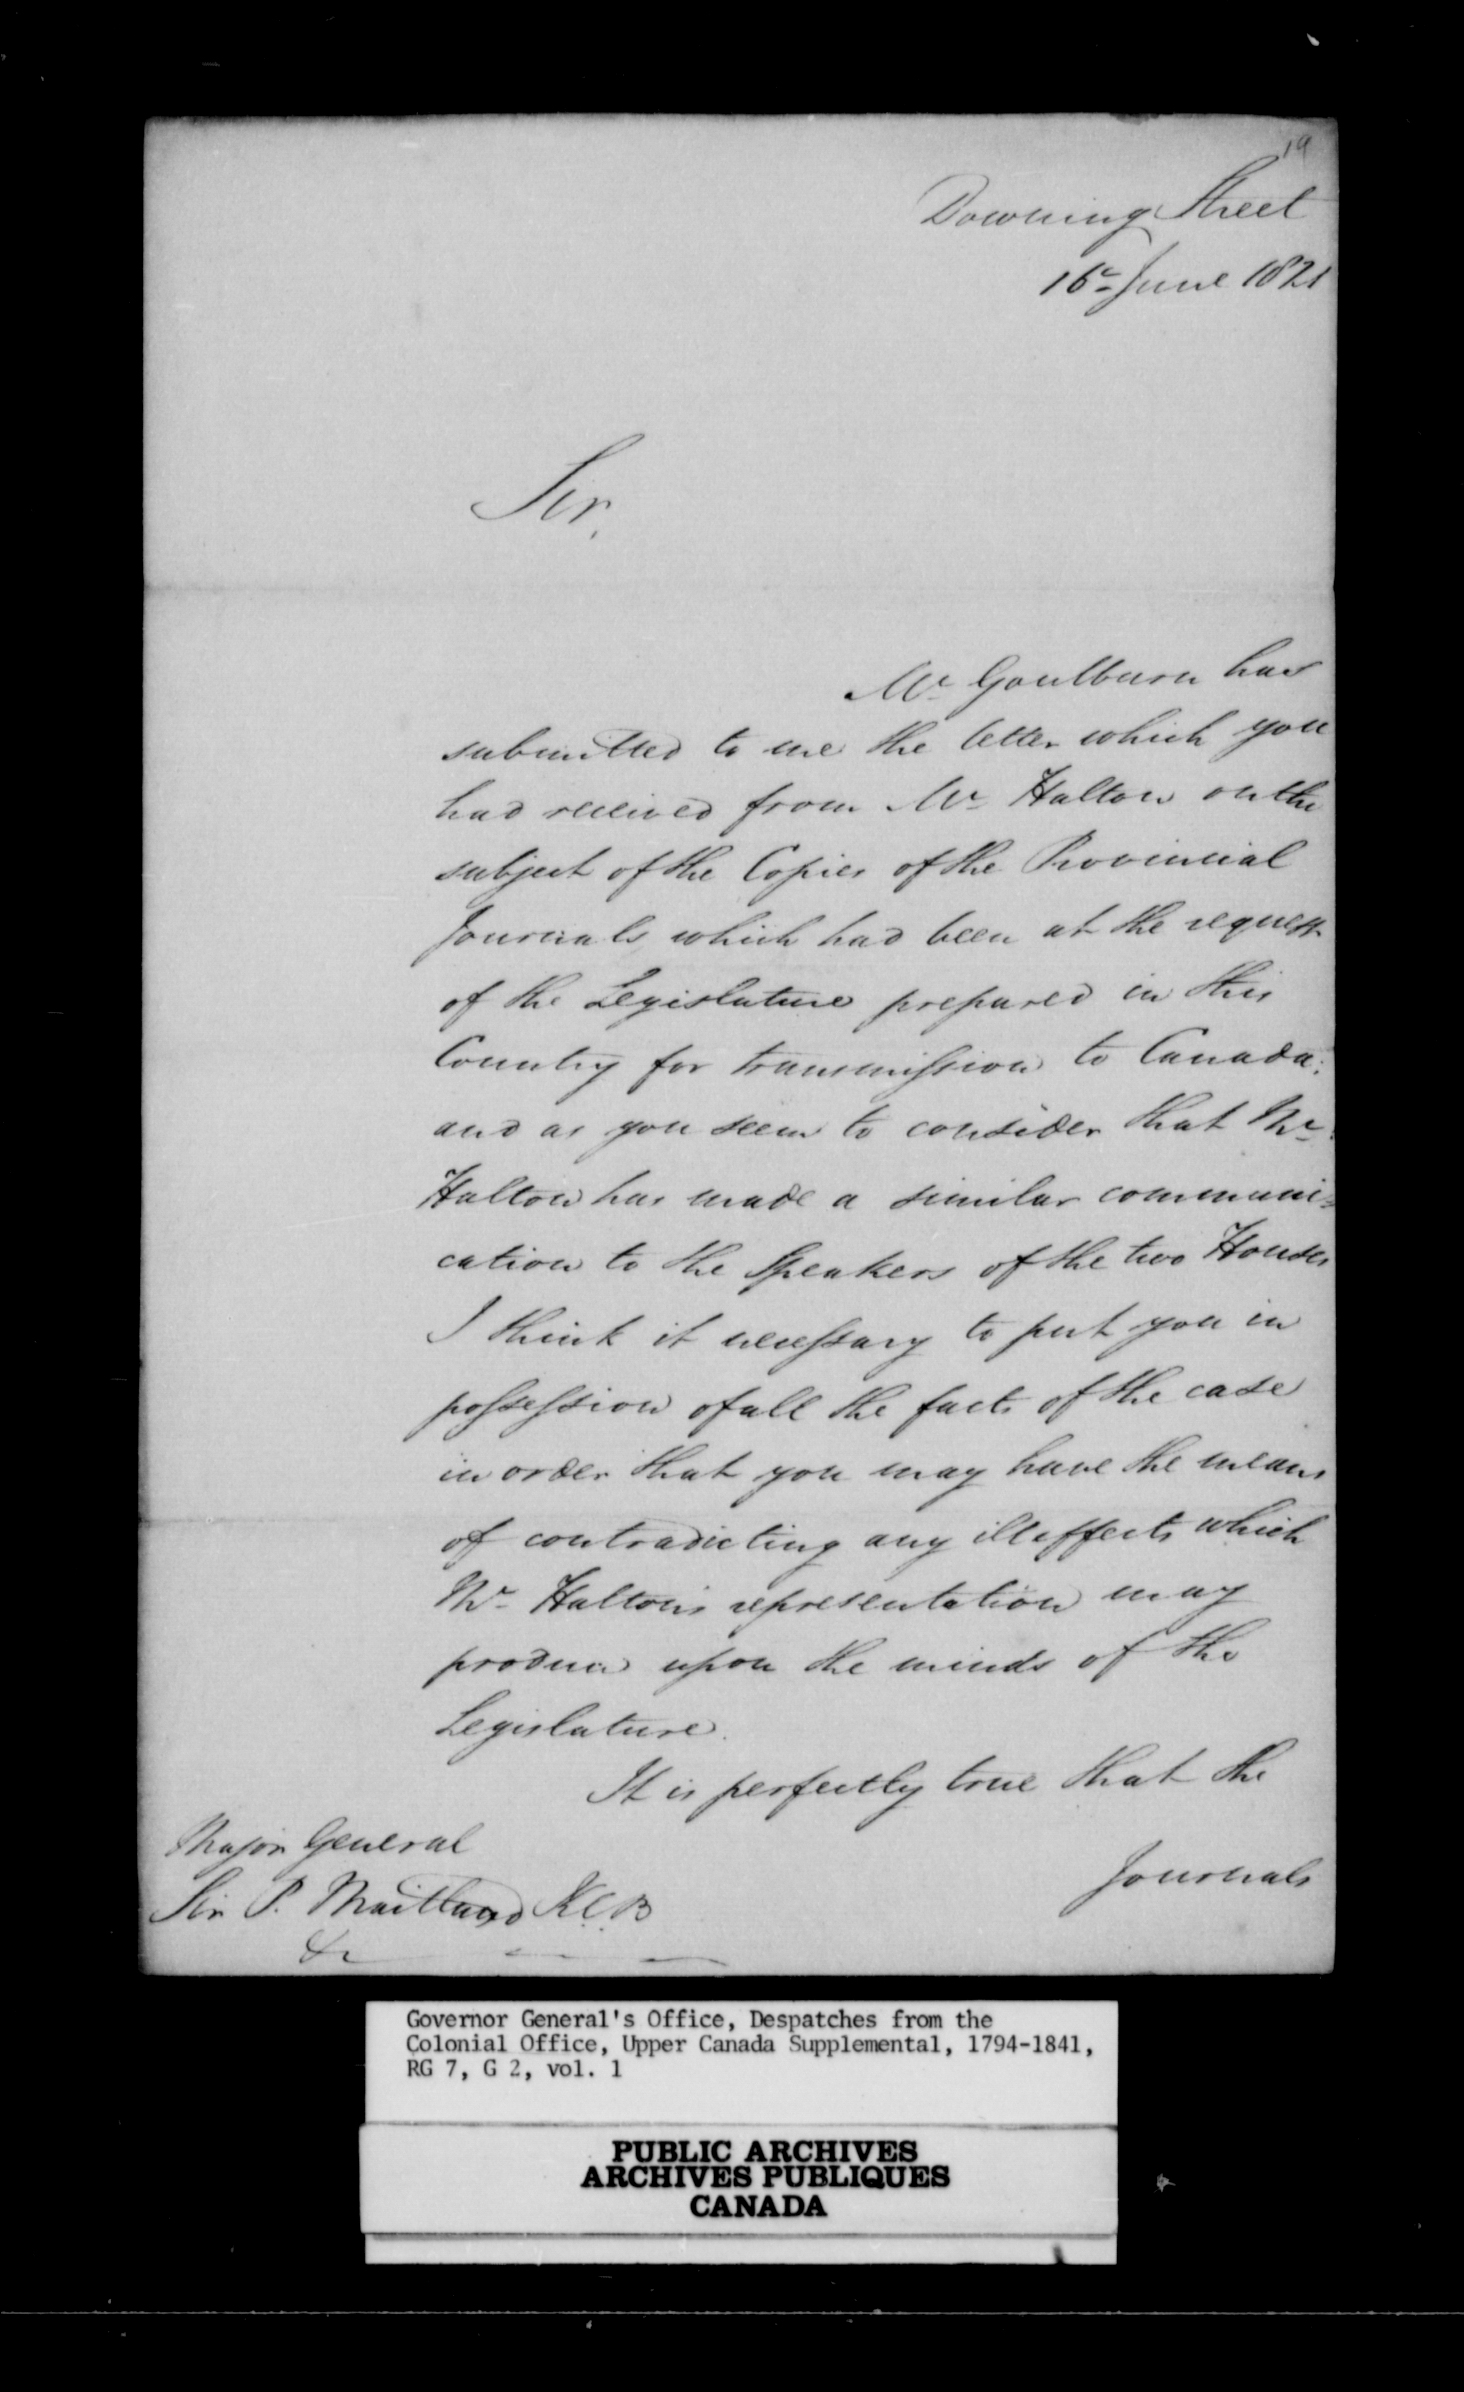 19
Downing Street
16th June 1821
Sir,
Mr. Goulburn has
submitted to me the letter which you
had received from Mr. Halton on the
subject of the Copies of the Provincial
Journals, which had been at the request
of the Legislature prepared in this
Country for transmission to Canada;
and as you seem to consider that Mr.
Halton has made a similar communi=
cation to the Speakers of the two Houses
I think it necessary to put you in
possession of all the facts of the case
in order that you may have the means
of contradicting any ill effects which
Mr. Halton's representation may
produce upon the minds of the
Legislature.
It is perfectly true that the
Major General
Sir P. Maitland K.C.B
&c
Journals
Governor General's Office, Despatches from the
Colonial Office, Upper Canada Supplemental, 1794-1841,
RG 7, G 2, vol. 1
PUBLIC ARCHIVES
ARCHIVES PUBLIQUES
CANADA